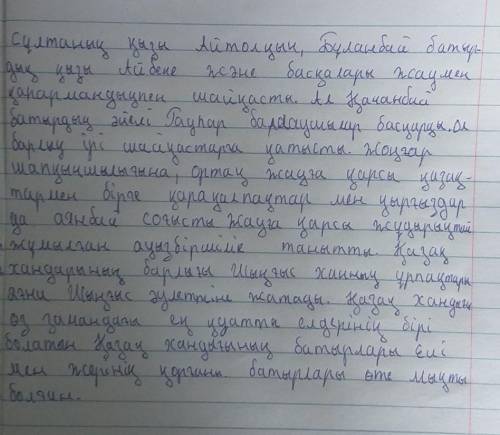 Сұлтаның қызы Айтолқын, Бұланбай батыр-
дың қызы Айбеке және басқалары жаумен
қаһармандықпен шайқасты. Ал Қачанбай
батырдың әйелі Гауһар басқарды. Ол
барлық ірі шайқастарға қатысты. Жоңғар
шапқыншылығына, ортақ жауға қарсы қазақ-
тармен бірге қарақалпақтар мен қырғыздар
да аянбай соғысты жауға қарсы жұдырықтай
жұмылған ауызбіршілік танытты. Қазақ
хандарының барлығы Шыңғыс ханның ұрпақтары
яғни Шыңғыс әулетіне жатады. Қазақ хандығы
өз замандағы ең қуатты елдерінің бірі
болатын Қазақ хандығының батырлары Елі
мен жерінің қорғаны батырлары өте мықты
болған.